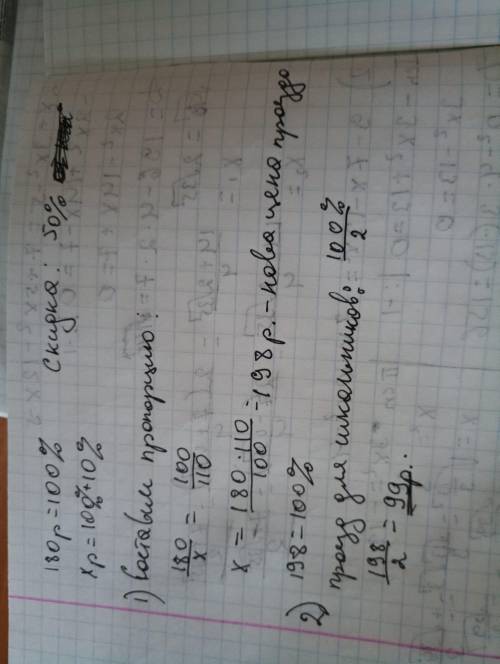 180р = 100%    Скидка: 50%
xр = 100%+10%
1) Составим пропорцию:
180/x = 100/110
x = 180·110/100 = 198р. - новая цена проезда
2) 198 = 100%
проезд для школьников: 100%/2
198/2 = 99р.